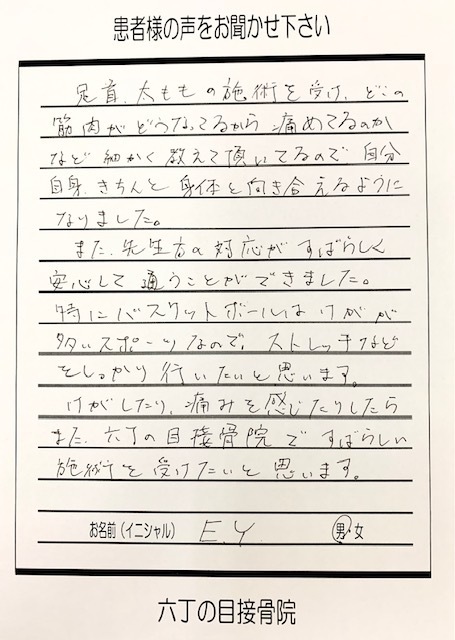 患者様の声をお聞かせ下さい
足首、太ももの施術を受け、どこの
筋肉がどうなってるから痛めてるのか
など細かく教えて頂いてるので自分
自身、きちんと身体と向き合えるように
なりました。
また、先生方の対応がすばらしく
安心して通うことができました。
特にバスケットボールはけがが
多いスポーツなので、ストレッチなど
をしっかり行いたいと思います。
けがしたり、痛みを感じたりしたら
また、六丁の目接骨院ですばらしい
施術を受けたいと思います。
お名前(イニシャル) E.Y. 男・女
六丁の目接骨院